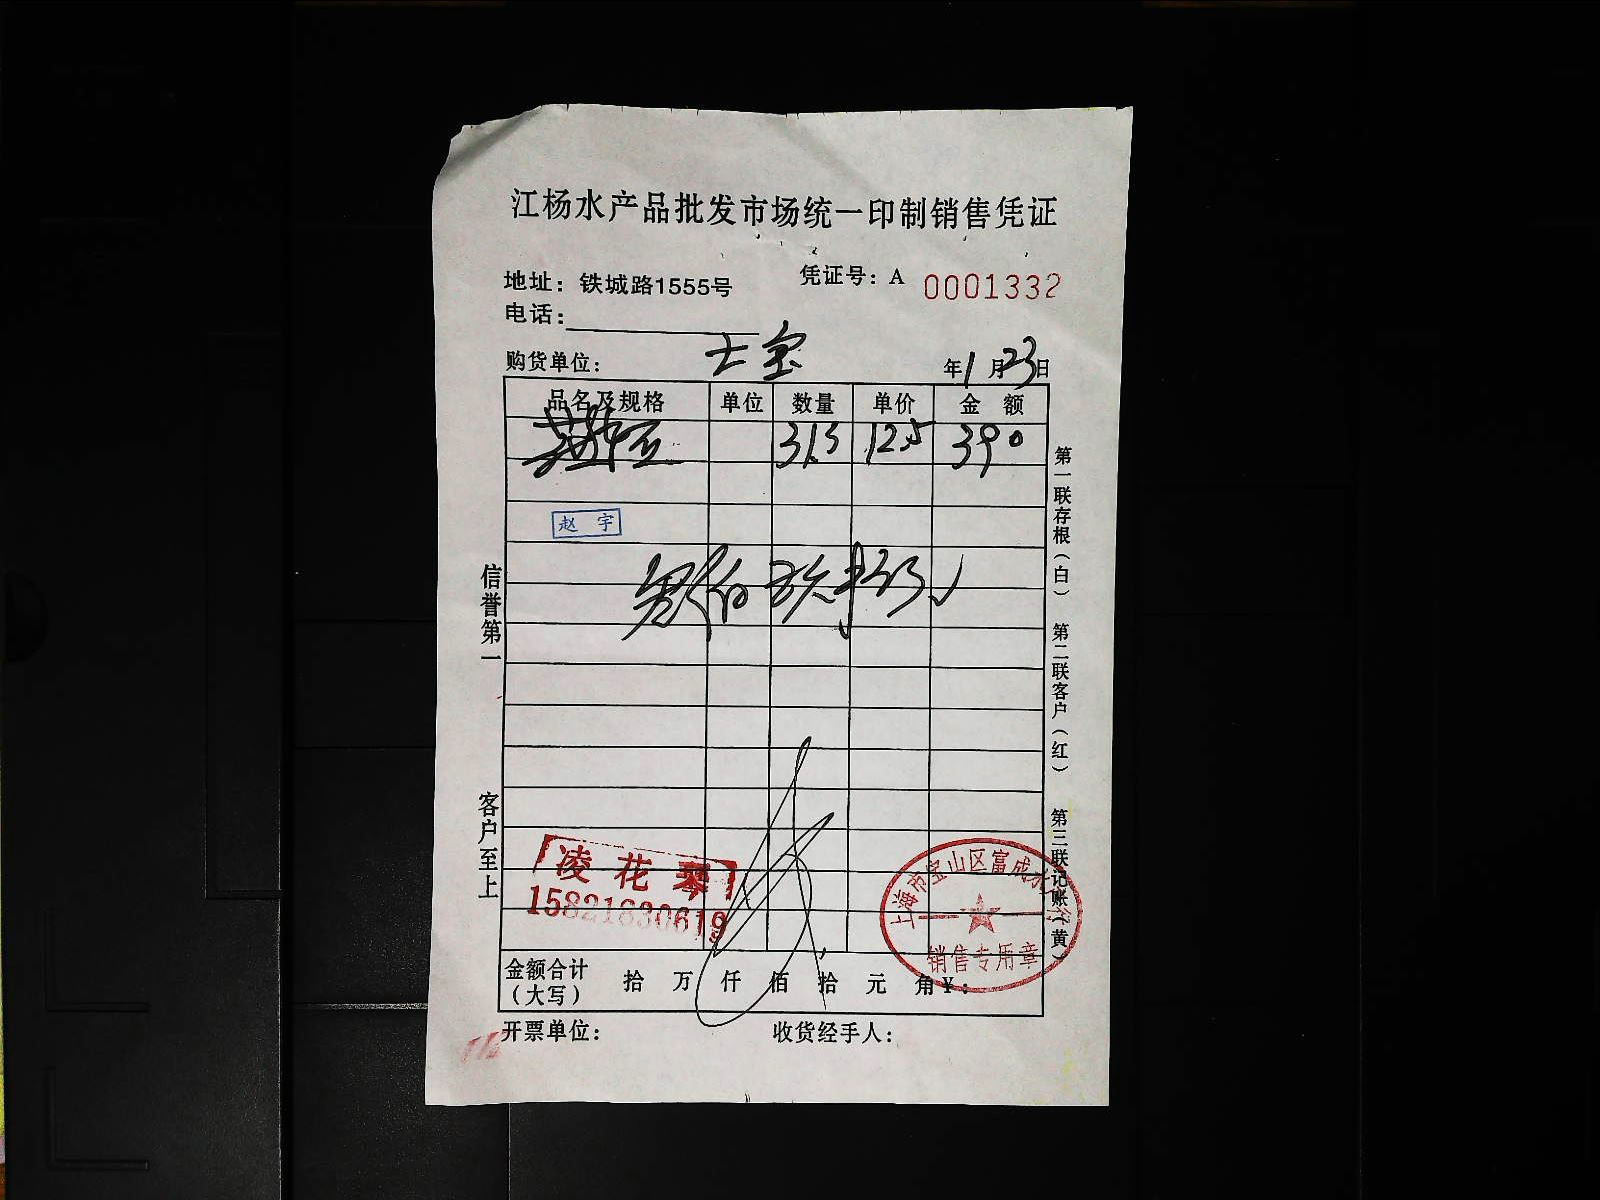 江杨水产品批发市场统一印制销售凭证
地址：铁城路1555号
凭证号：A 0001332
电话：
购货单位： 士宝
年1月23日
品名及规格 单位 数量 单价 金额
31.3 12.5 390
赵宇
信誉第一
客户至上
第一联存根（白） 第二联客户（红） 第三联记账（黄）
凌花琴
15821830619
上海市宝山区富成水
销售专用章
金额合计（大写） 拾 万 仟 佰 拾 元 角￥：
开票单位： 收货经手人：